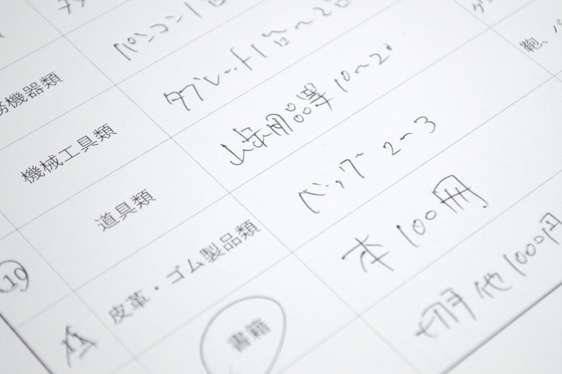 パソコン1台〜2台
務機器類 タブレット1台〜2台
機械工具類 日用品等 10〜20
道具類 バッグ 2〜3
皮革・ゴム製品類 本100冊
書籍 切手他1000円
19
鞄、バ